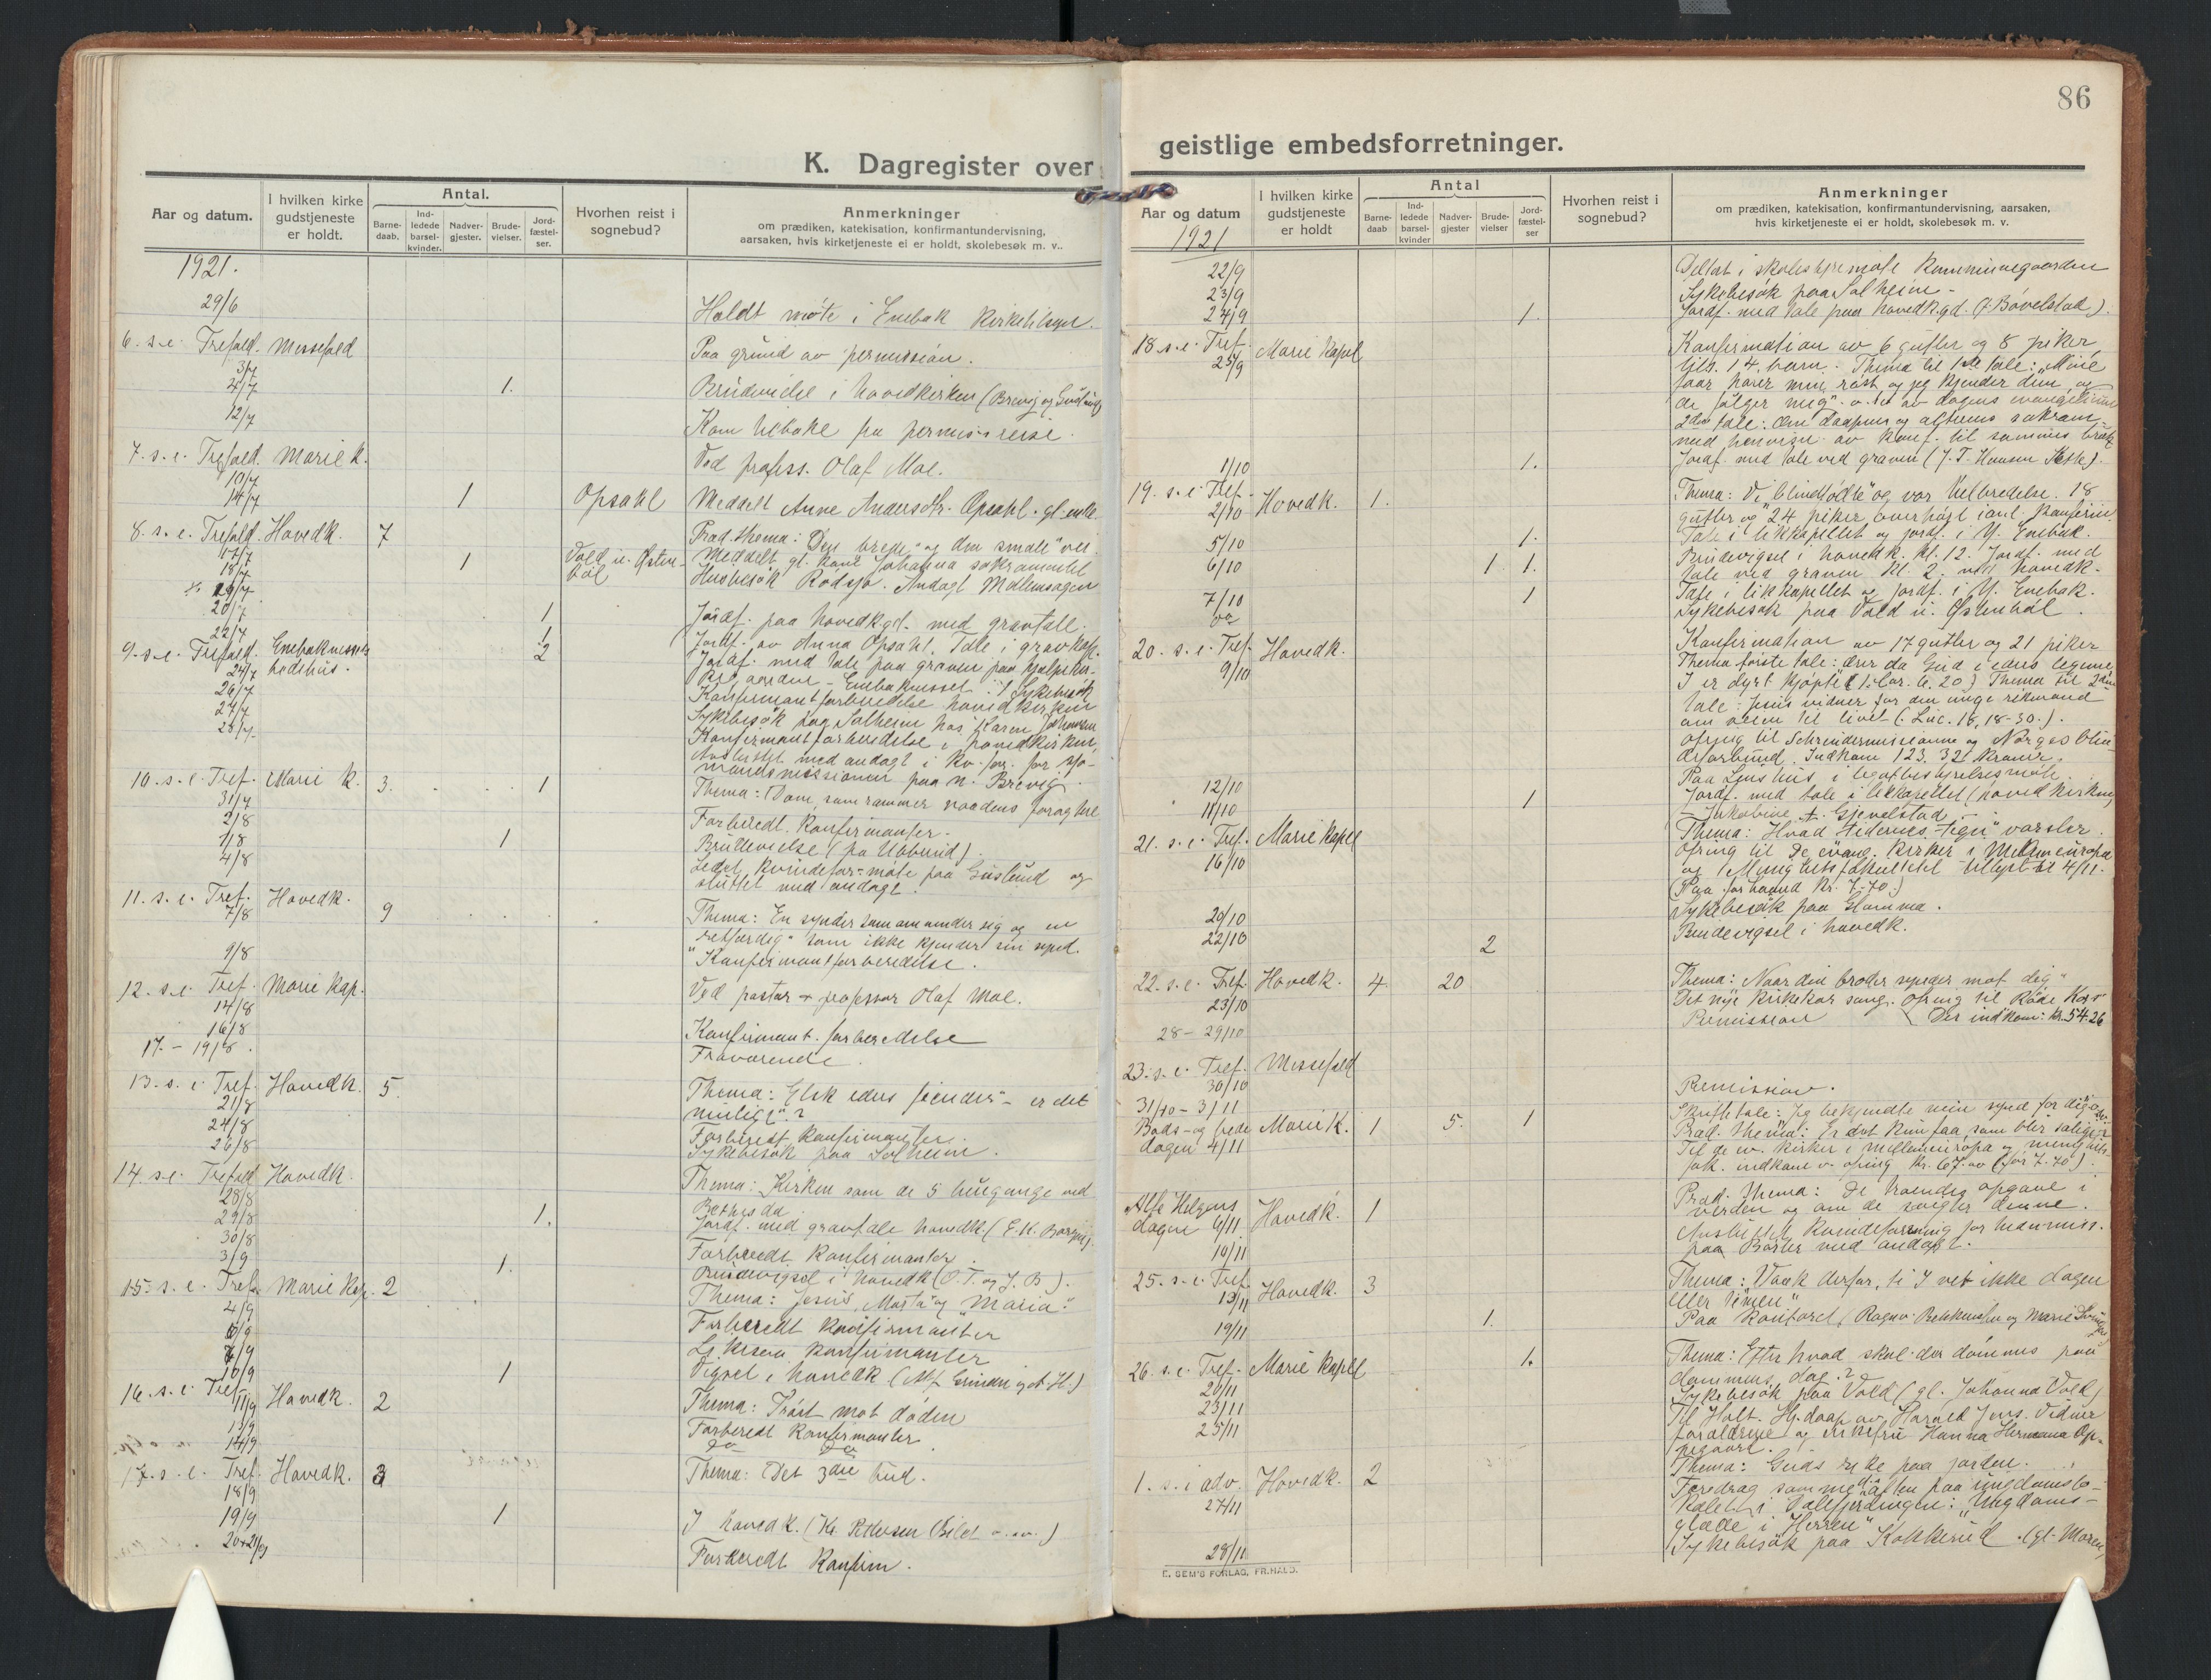 86
K. Dagregister over
Aar og datum.
I hvilken kirke
gudstjeneste
er holdt.
Antal.
Barne-
daab.
Ind-
ledede
barsel-
kvinder.
Nadver-
gjester.
Brude-
vielser.
Jord-
fæstel-
ser.
Hvorhen reist i
sognebud?
Anmerkninger
om prædiken, katekisation, konfirmantundervisning,
aarsaken, hvis kirketjeneste ei er holdt, skolebesøk m. v..
1921.
29/6 Holdt møte i Enebak kirketilsyn.
6. s. e. Trefold. Messefald
3/7 Paa grund av permission.
4/7 1. Brudevielse i hovedkirken (Brevig og
12/7 Kom tilbake fra permis.reise.
7. s. e. Trefold. Marie k. Ved profess. Olaf Moe.
10/7
14/7 1 Opsahl Meddelt Anne Andersdtr. Opsahl. gl. enke.
8. s. e. Trefold. Hovedk. 7 Præd. thema: Den brede og den smale vei.
17/7
18/7 1 Vold u. Østen-
bøl Meddelt gl. kone Johanna sakramentet
Husbesøk Rødsjø. Andagt
20/7 1 Jordf. paa hovedkgd. med gravtale.
22/7 1 Jordf. av Anna Opsahl. Tale i gravkap.
9. s. e. Trefold. Enebakneset
bedehus. 2 Jordf. med tale paa graven paa
24/7
26/7 Konfirmantforberedelse hovedkirken
27/7 Sykebesøk paa Solheim hos Karen Johansen
28/7 Konfirmantforberedelse i hovedkirken,
Avsluttet med andagt i kv. for. for sjø-
mandsmissionen paa n. Brevig.
10. s. e. Tref. Marie k. 3. 1 Thema: Dom, som rammer naadens foragtere
31/7
2/8 Forberedt. Konfirmanter.
1/8 1 Brudevielse (fra Ubberud).
4/8 Ledet kvindefor-møte paa Guslund og
sluttet med andagt.
11. s. e. Tref. Hovedk.
7/8 9 Thema: En synder som omvender sig og en
"retfærdig" som ikke kjender sin synd.
9/8 Konfirmantforberedelse.
12. s. e. Tref. Marie kap. Ved pastor + professor Olaf Moe.
14/8
16/8 Konfirmant. forberedelse
17. - 19/8. Fraværende.
13. s. e. Tref. Hovedk. 5. Thema: Elsk eders fiender" - er det
mulig?
21/8
24/8 Forberedt konfirmanter.
26/8 Sykebesøk paa Solheim.
14. s. e. Trefold Hovedk. Thema: Kirken som de 5 buegange ved
Bethesda
28/8
29/8 1. Jordf. med gravtale hovedk (E. K.
30/8 Forberedt konfirmanter.
3/9 1. Brudevigsel i hovedk (O. T. og J. B.).
15. s. e. Tref. Marie kap. 2 Thema: Jesus, Marta og Maria."
4/9
6/9 Forberedt konfirmanter
7/9 konfirmanter
10/9 1 Vigsel i hovedk
16. s. e. Tref. Hovedk. 2 Thema: Trøst mot døden
11/9
13/9 Forberedt konfirmanter.
14/9 do do
17. s. e. Tref. Hovedk. 3 Thema: Det 3die bud.
18/9
19/9 1 I hovedk. (
20 + 21/9 Forberedt konfirm.
geistlige embedsforretninger.
Aar og datum
I hvilken kirke
gudstjeneste
er holdt
Antal
Barne-
daab
Ind-
ledede
barsel-
kvinder
Nadver-
gjester
Brude-
vielser
Jord-
fæstel-
ser
Hvorhen reist i
sognebud?
Anmerkninger
om prædiken, katekisation, konfirmantundervisning, aarsaken,
hvis kirketjeneste ei er holdt, skolebesøk m. v.
1921
22/9 Deltat i skolestyremøte kommunegaarden
23/9 Sykebesøk paa Solheim -
24/9 1. Jordf. med tale paa hovedkgd. (J. Bøvelstad).
18. s. e. Tref. Marie kapel Konfirmation av 6 gutter og 8 piker
25/9 tils. 14. barn. Thema til 1ste tale: "Mine
faar hører min røst og jeg kjender dem og
de følger mig" - av dagens evangelium
2den tale: Om daapens og alterens sakram.
med henvisn. av konf. til sammes bruk
1/10 1. Jordf. med tale ved graven (J. T. Hansen
19. s. e. Tref. Hovedk. 1. Thema: Vi blindfødte" og vor helbredelse. 18
2/10 gutter og 24 piker overhørt
5/10 1. Tale i likkapellet og jordf. i Y. Enebak.
6/10 1 1. Brudevigsel i hovedk. kl. 12. Jordf. med
tale ved graven kl. 2. ved hovedk.
7/10 1 Tale i likkapellet og jordf. i Y. Enebak.
do Sykebesøk paa Vold u. Østenbøl.
20. s. e. Tref. Hovedk. Konfirmation av 17 gutter og 21 piker
9/10 Thema første tale: Ær da Gud i eders legeme,
I er dyrt kjøpte (1. Cor. 6. 20) Thema til 2den
tale: Jesus vidner for den unge rikmand
om veien til livet (Luc. 18, 18-30.).
Ofring til Schreudermissionen og Norges blin-
deforbund. Indkom 123. 32 kroner.
12/10 Paa i legatbestyrelsesmøte.
11/10 1 Jordf. med tale i likkapellet (hovedkirken)
- Jakobine Gjevelstad -
21. s. e. Tref. Marie kapel Thema: Hvad tidernes tegn" varsler.
16/10 Ofring til De evang. kirker i Mellemeuropa
og Menighetsfakultetet utlyst til 4/11.
(Paa forhaand kr. 7.70.)
20/10 Sykebesøk paa Glomma.
22/10 2 Brudevigsel i hovedk.
22. s. e. Tref. Hovedk. 4 20 Thema: Naar din broder synder mot dig"
23/10 Det nye kirkekor sang. Ofring til Røde Kors
28 - 29/10 Permission Der indkom: kr. 54.26
23. s. e. Tref. Messefald
30/10 Permission.
31/10 - 3/11
Bods- og bede
dagen 4/11 Marie k. 1 5. 1 Skriftetale: Jeg bekjendte min synd for dig
Præd. thema: Er det kun faa, som blir salige?
Til de ev. kirker i Mellemeuropa og menighets-
fak. indkom v. ofring kr. 67.00 (før 7.70).
Alle Helgens
dagen 6/11 Hovedk. 1 Præd. thema: De troendes opgave i
verden og om de svigter denne.
10/11 Avsluttet kvindeforening for
paa Børter med andagt.
25. s. e. Tref. Hovedk. 3 Thema: Vaak derfor, ti I vet ikke dagen
13/11 eller timen"
19/11 1. Paa kontoret
26. s. e. Tref. Marie kapel 1. Thema: Efter hvad skal der dømmes paa
20/11 dommens dag?
23/11 Sykebesøk paa Vold (gl. Johanna Vold)
25/11 Til Holt. Hj.daap av Harald Jens. Vidner
forældrene og Hanna Hermana Op-
pegaard.
1. s. i adv. Hovedk. 2 Thema: Guds rike paa jorden.
27/11 Foredrag samme aften paa ungdomslo-
kalet i Dalefjerdingen: "Ungdoms-
glæde i Herren"
28/10 Sykebesøk paa Kokkerud. (gl. Maren)
E. SEM'S FORLAG, FR.HALD.